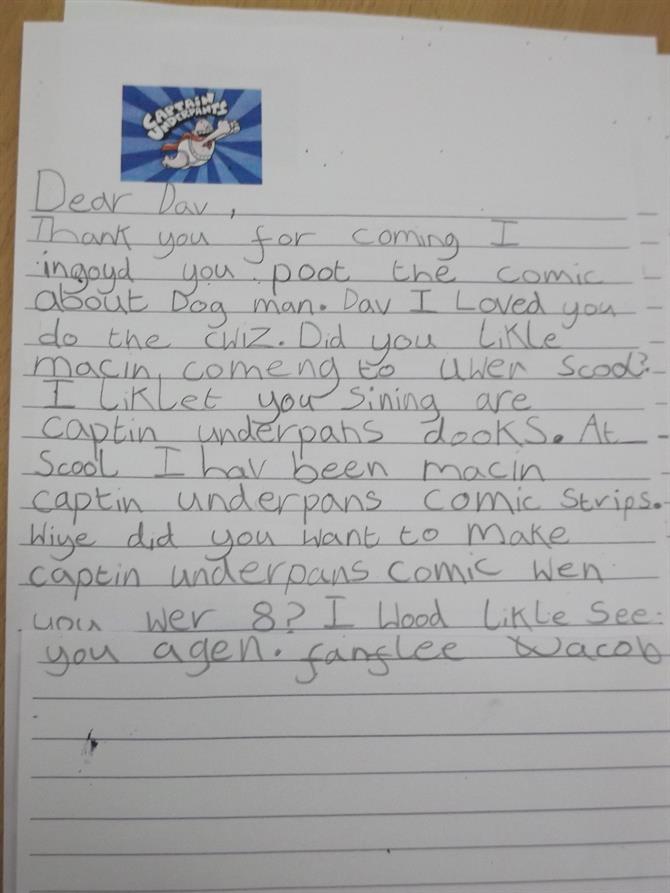 CAPTAIN
UNDERPANTS
Dear Dav,
Thank you for coming I
ingoyd you poot the comic
about Dog man. Dav I Loved you
do the cwiz. Did you likle
macin comeng to uwer scool?
I likLet you sining are
captin underpans dooks. At
scool I hav been macin
captin underpans comic strips.
Wiye did you want to make
captin underpans comic wen
you wer 8? I Wood likle see
you agen. fanglee Wacob